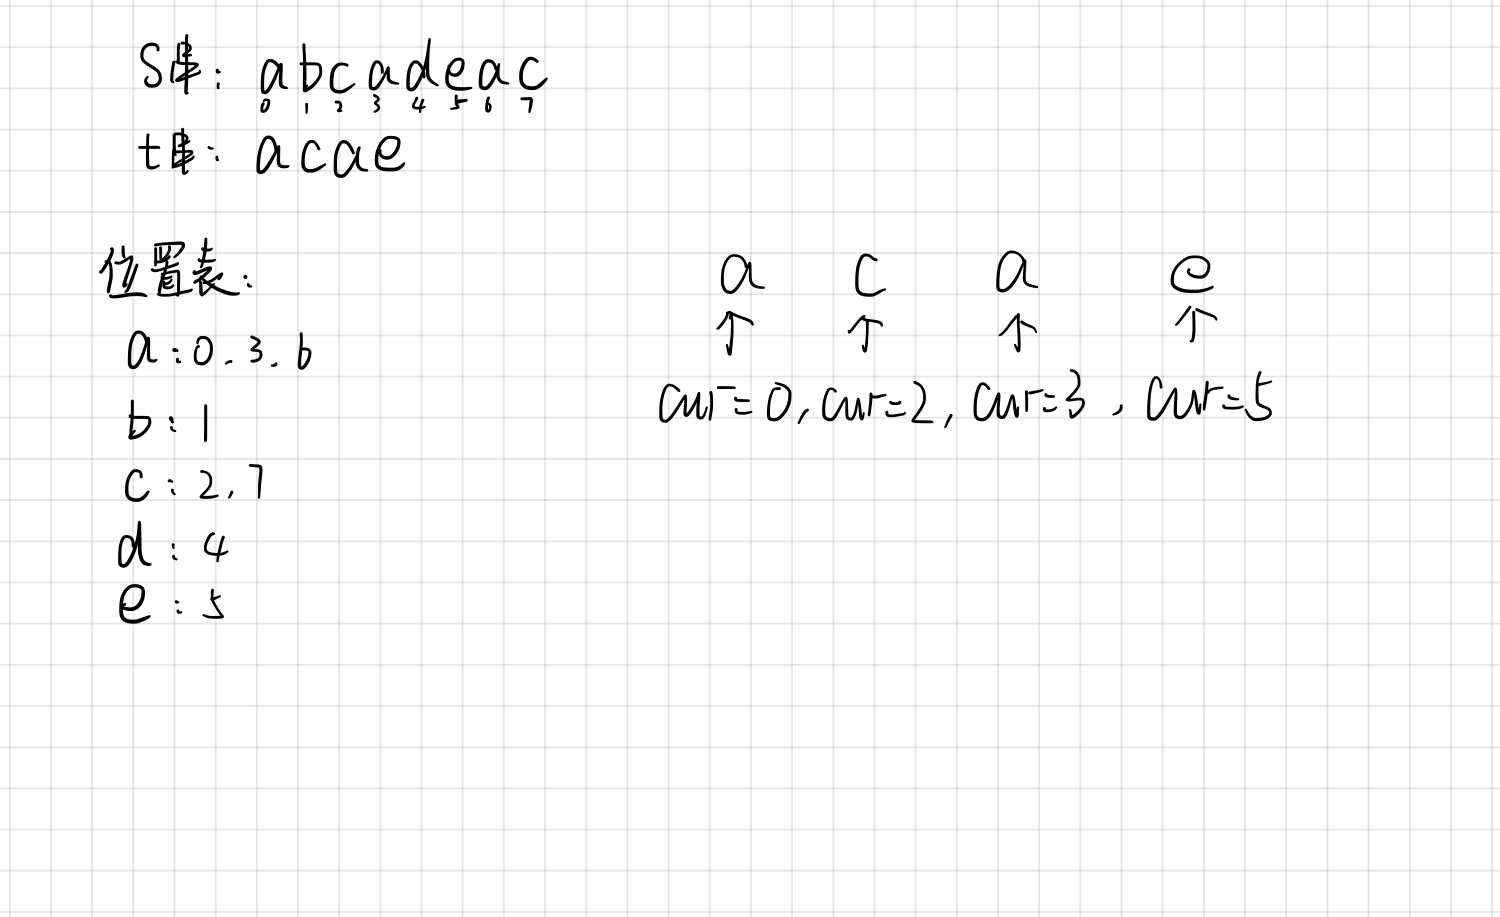 S串: abcadeac
0 1 2 3 4 5 6 7
t串: acae
位置表:
a:0.3.6
b:1
c:2,7
d:4
e:5
a c a e
↑ ↑ ↑ ↑
cur=0,cur=2,cur=3,cur=5